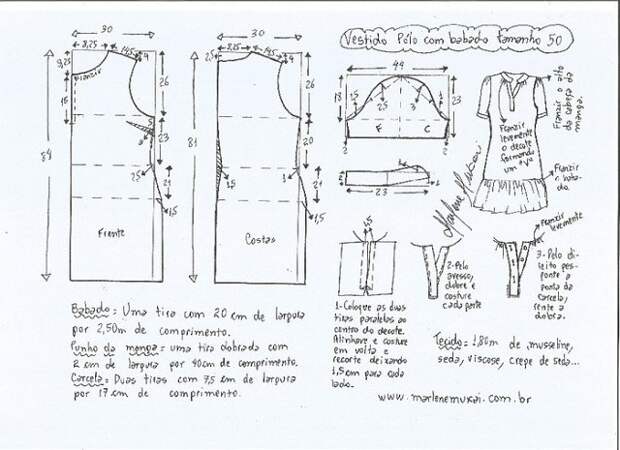 Vestido Pólo com babado tamanho 50
30
8,25
14,5
4
9,25
Franzir
16
26
84
23
2,5
21
1,5
Frente
30
2,5
8,25
14,5
4
26
81
20
3
1,5
21
1,5
Costas
44
18
23
F
C
2
2
23
Franzir o alto
da cabeça da
manga.
Franzir
levemente
o decote
formando
um "V"
Franzir
o baba-
do.
Marlene Mukai
1,5
1-Coloque as duas
tiras paralelas ao
centro do decote.
Alinhave e costure
em volta e
recorte deixando
1,5 cm para cada
lado.
2-Pelo
avesso,
dobre e
costure
cada parte
Franzir
levemente
3-Pelo di-
reito pes-
ponte a
ponta da
carcela,
rente a
dobra.
Babado = Uma tira com 20 cm de largura
por 2,50m de comprimento.
Punho da manga = uma tira dobrada com
2 cm de largura por 40cm de comprimento.
Carcela = Duas tiras com 7,5 cm de largura
por 17 cm de comprimento.
Tecido = 1,80m de musseline,
seda, viscose, crepe de seda...
www.marlenemukai.com.br